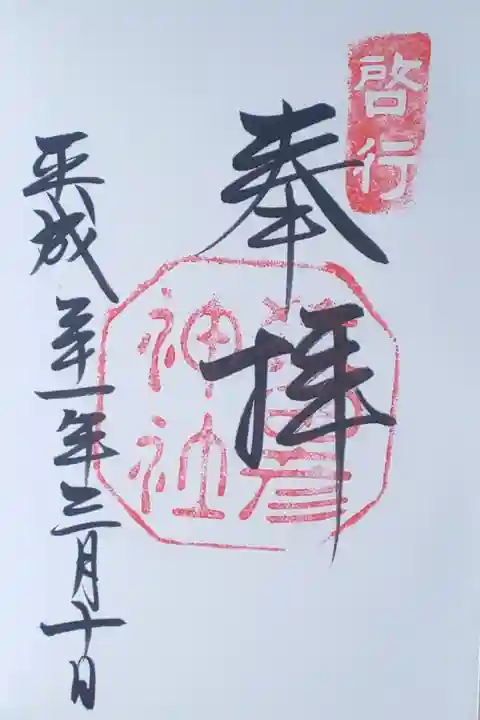 啓行
奉拝
彦
神社
平成
一年三月十日